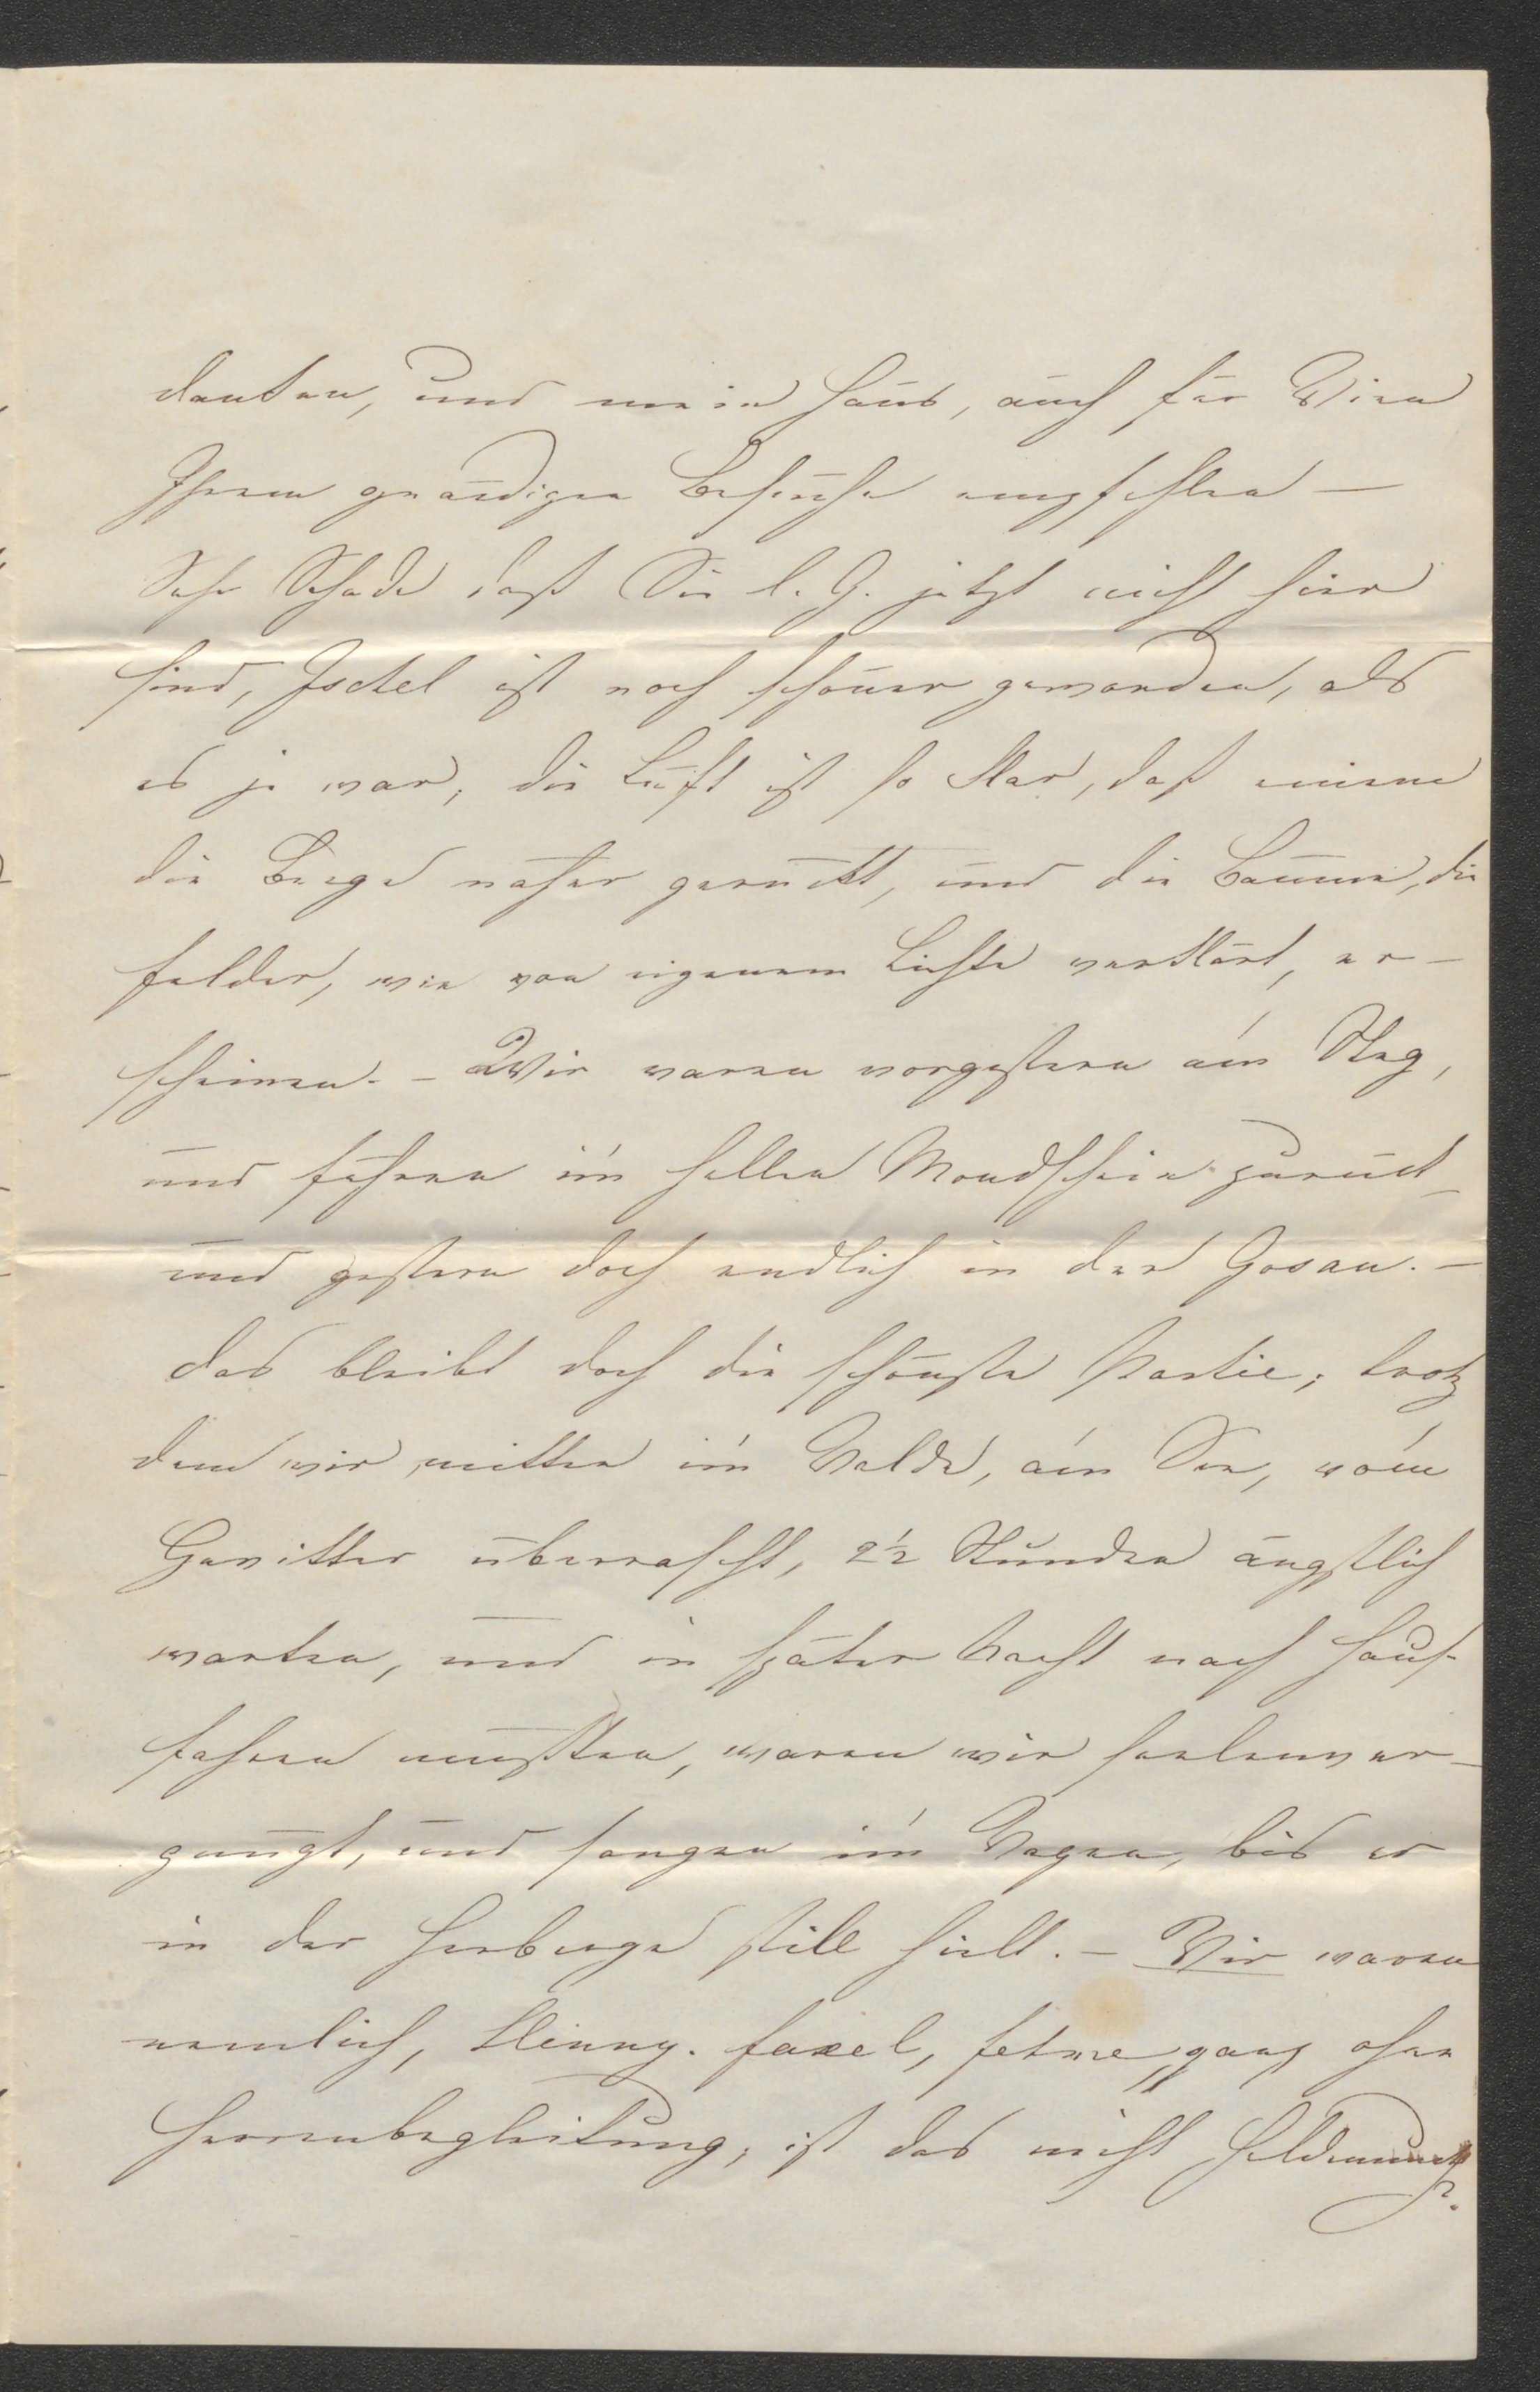 danken, und mein Haus, auch für Wien
Ihrem gnädigen Besuche empfehlen —
Sehr Schade daß Sie l. G. jetzt nicht hier
sind, Ischel ist noch schöner geworden, als
es je war, die Luft ist so klar, daß einem
die Berge näher gerückt, und die Bäume, die
Felder, wie von eigenem Lichte verklärt, er-
scheinen. - Wir waren vorgestern am Steg,
und fuhren im hellen Mondschein zurück -
und gestern doch endlich in der Gosau. -
das bleibt doch die schönste Partie; trotz
dem wir mitten im Walde, am See, vom
Gewitter überrascht, 2½ Stunden ängstlich
warten, und in später Nacht nach Haus
fahren mußten, waren wir seelenver-
gnügt, und sangen im Wagen, bis er
in der Herberge still hielt. - Wir waren
nemlich, ganz ohne
Herrenbegleitung, ist das nicht Heldenmuth?